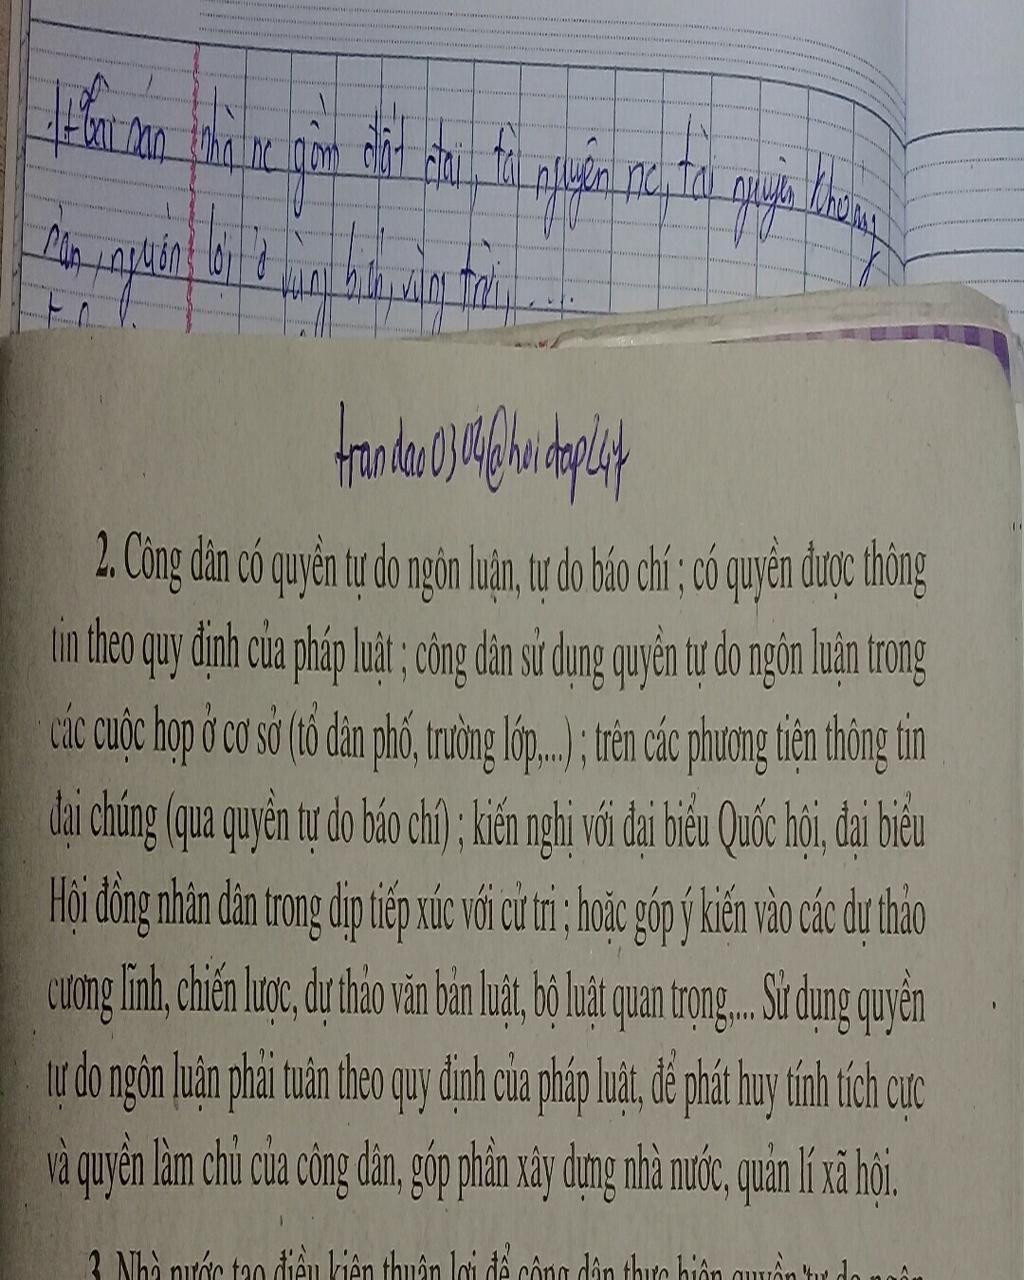 1+ Tài sản nhà nc gồm đất đai, tài nguyên nc, tài nguyên khoáng
sản, nguồn lợi ở vùng biển, vùng trời, ....
trandao0304@hoidap247
2. Công dân có quyền tự do ngôn luận, tự do báo chí ; có quyền được thông
tin theo quy định của pháp luật ; công dân sử dụng quyền tự do ngôn luận trong
các cuộc họp ở cơ sở (tổ dân phố, trường lớp,...) ; trên các phương tiện thông tin
đại chúng (qua quyền tự do báo chí) ; kiến nghị với đại biểu Quốc hội, đại biểu
Hội đồng nhân dân trong dịp tiếp xúc với cử tri ; hoặc góp ý kiến vào các dự thảo
cương lĩnh, chiến lược, dự thảo văn bản luật, bộ luật quan trọng,... Sử dụng quyền
tự do ngôn luận phải tuân theo quy định của pháp luật, để phát huy tính tích cực
và quyền làm chủ của công dân, góp phần xây dựng nhà nước, quản lí xã hội.
3. Nhà nước tạo điều kiện thuận lợi để công dân thực hiện quyền tự do ngôn